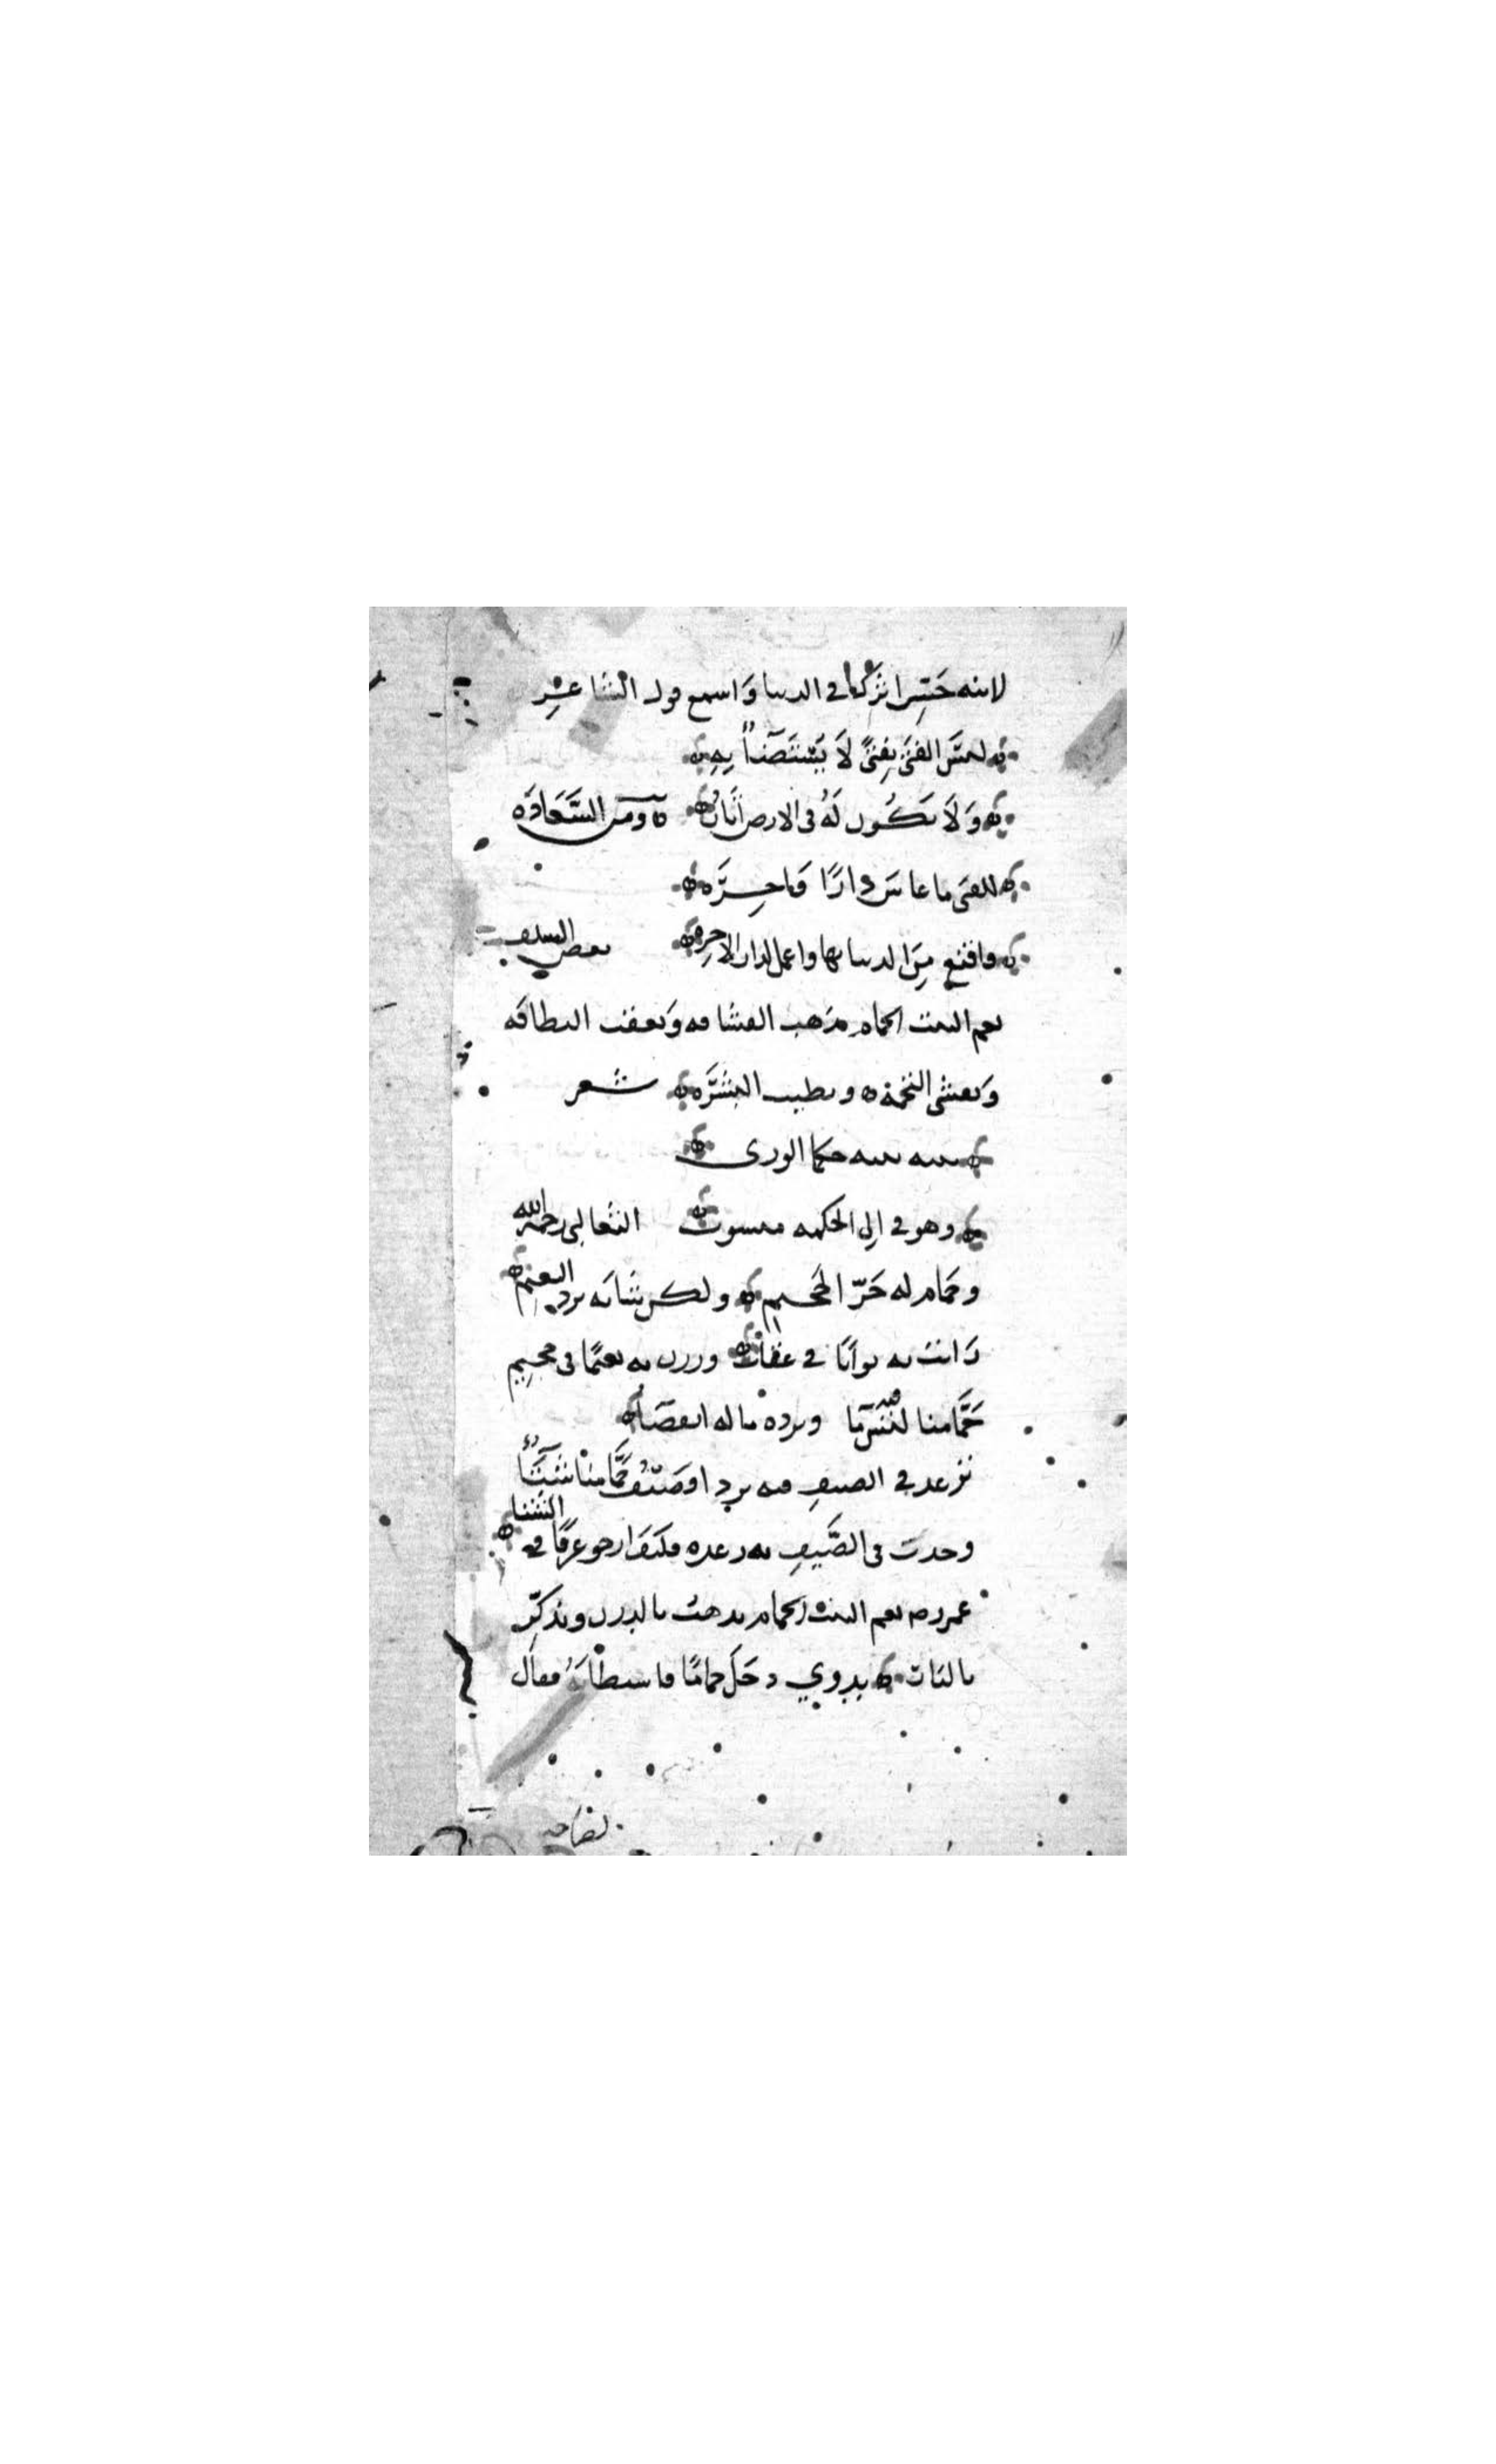 لابنه حسن اثرك في الدنيا واسمع قول الشاعر
ليس الفتى بفتى لا يستضا به
ولا تكون له في الارض اثار ومن السعادة
للفتى ما عاش دارا فاخره
فاقنع من الدنيا بها واعمل لدار الاخره بعض السلف
نعم البيت الحمام يذهب القشافه ويعقب النظافه
ويفشى التخمة ويطيب البشرة شعر
بيت بنته حكما الورى
وهو في الى الحكمه منسوب الثعالبي رحمه الله
وحمام له حر الجحيم ولكن شابه برد النعيم
رايت به ثوابا في عقاب وزرت به نعيما في جحيم
حمامنا ليس فيه ما وبرده ما له انقضا
نرعد في الصيف فيه بردا وصيف حمامنا شتاء
وجدت في الصيف به رعده فكيف ارجو عرقا في الشتا
عمر رضه نعم البيت الحمام يذهب بالدرن ويذكر
بالنار بدوي دخل حماما فاستطابه فقال